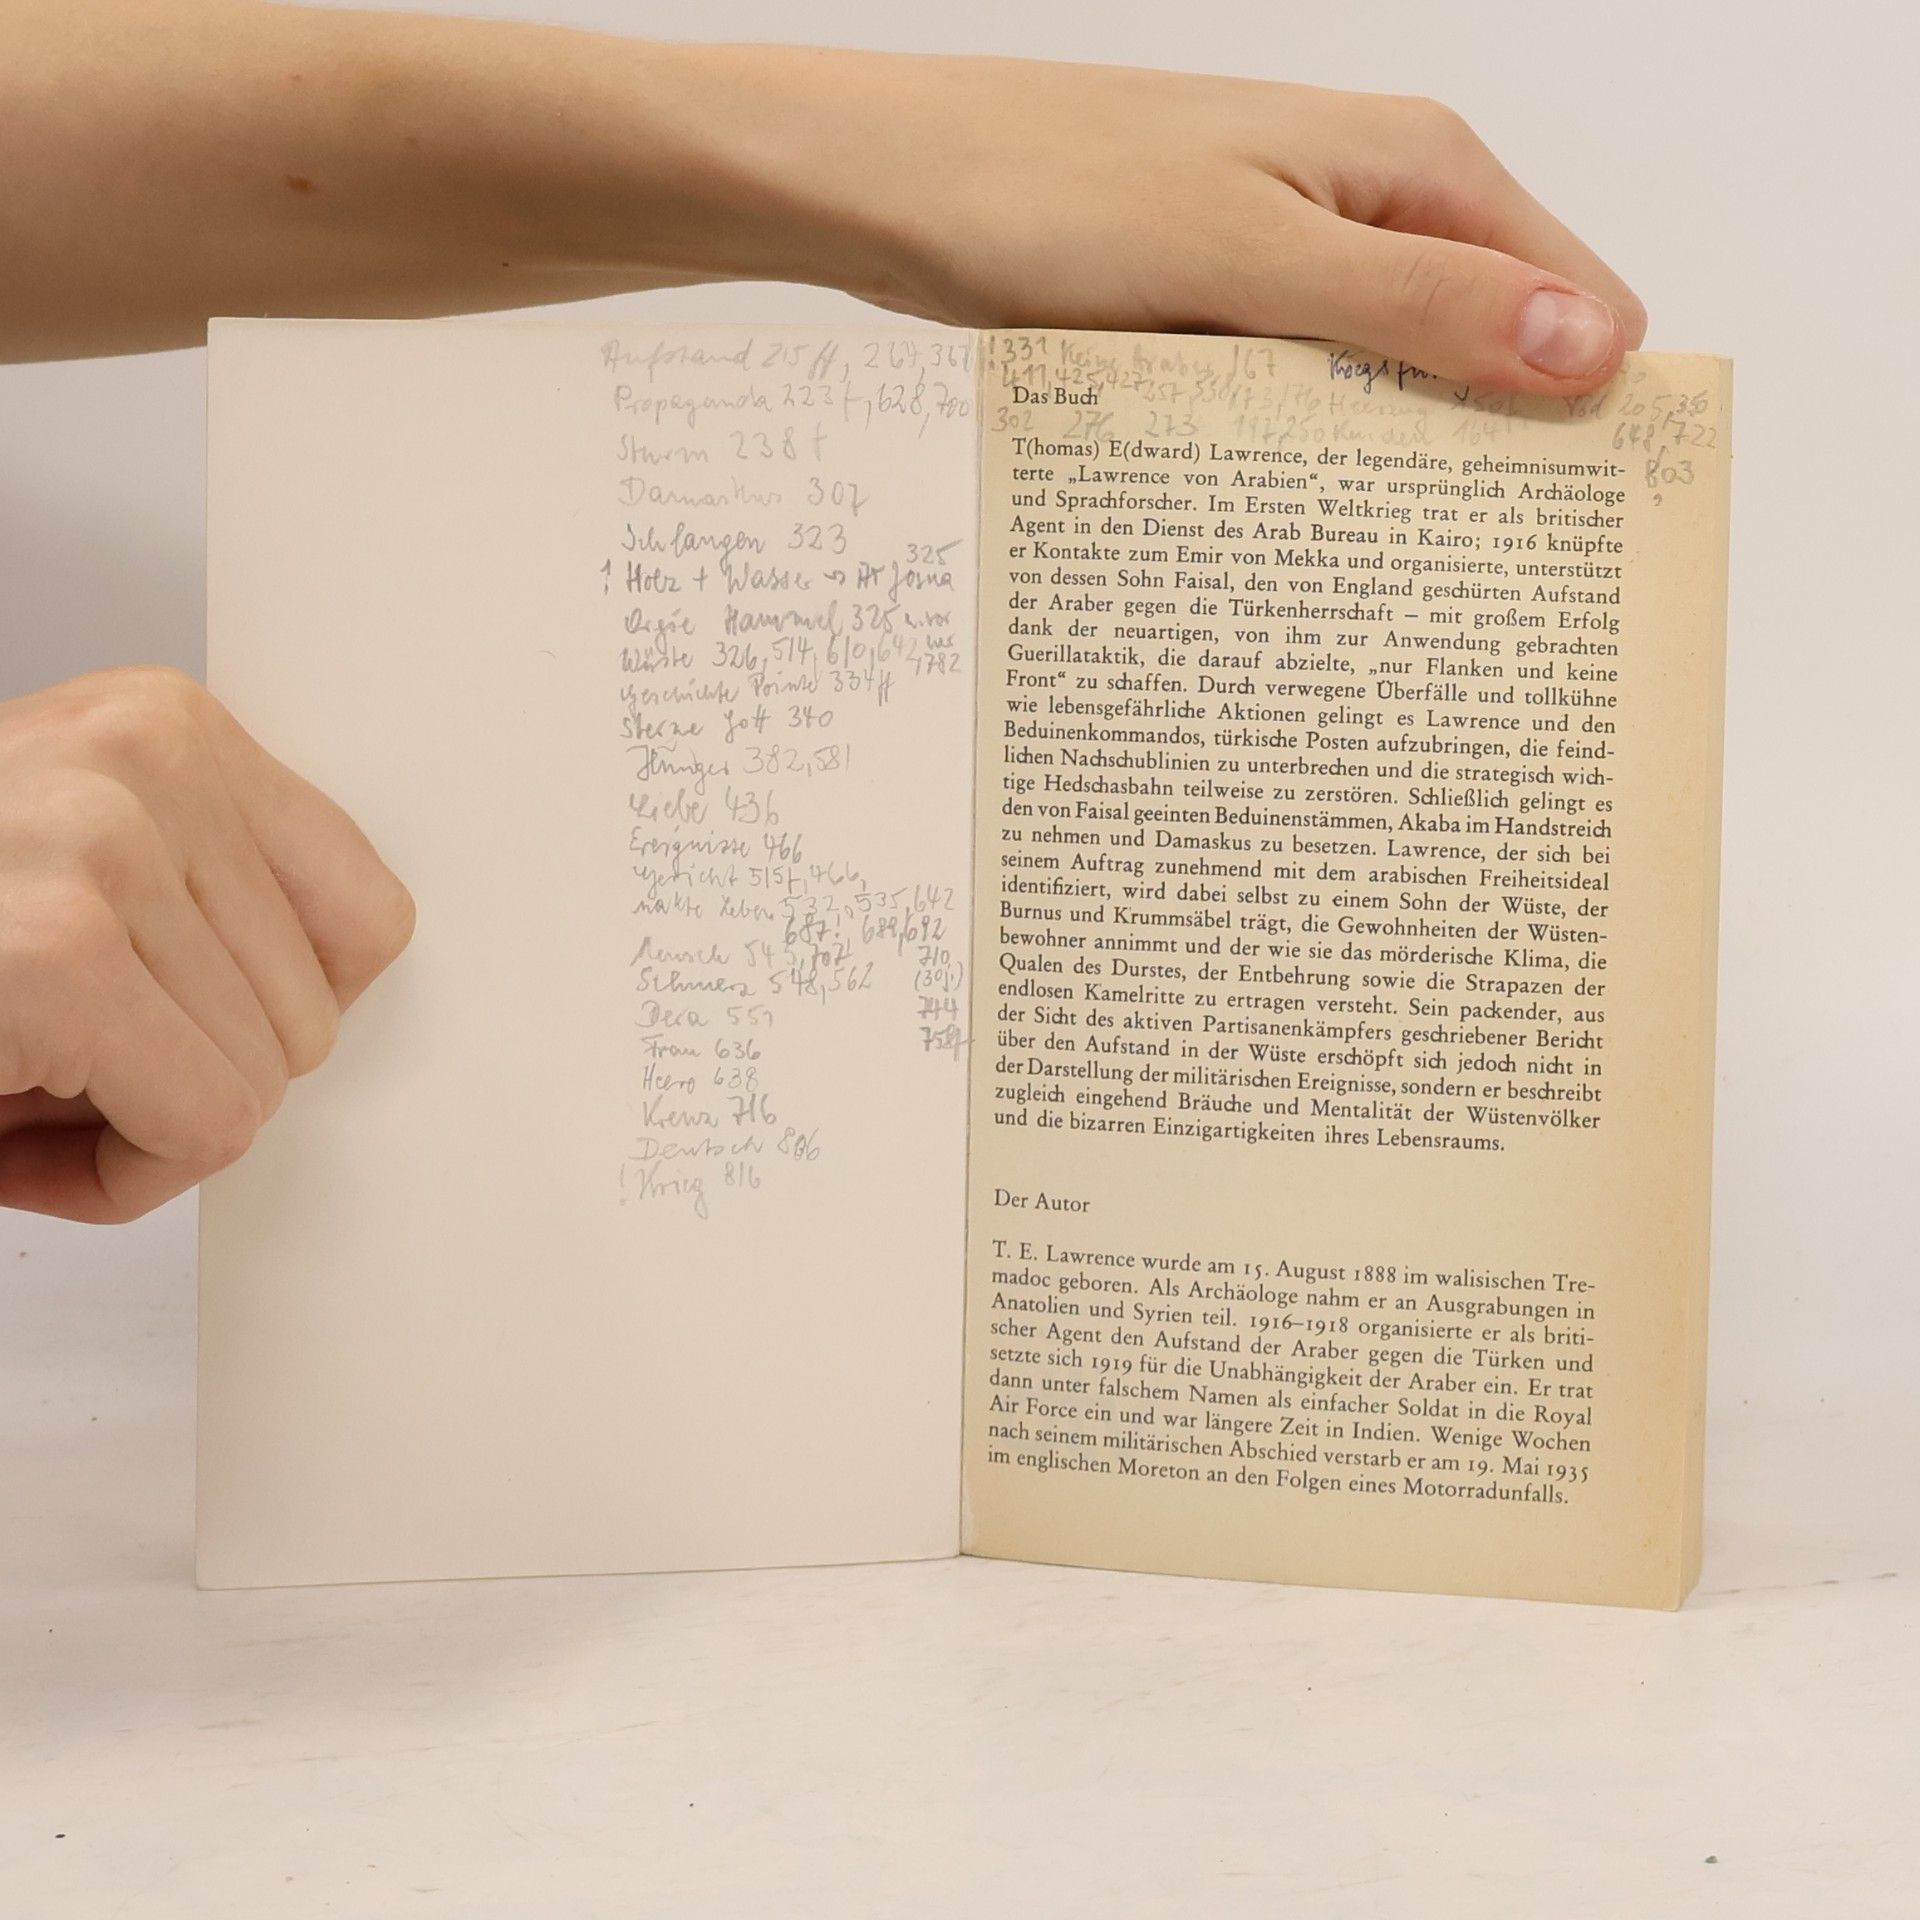 Aufstand 215 ff, 267, 367
Propaganda 223 f, 628, 700
Sturm 238 f
Damaskus 307
Schlangen 323
325
! Holz + Wasser
Orgie Hammel 325
Wüste 326, 514, 610, 642,
782
Geschichte Pointe 334 ff
Sterne Gott 340
Hunger 382, 581
Liebe 436
Ereignisse 466
Gericht 515 f, 466,
nackte Leben 532, 535, 642
687! 689, 692
Mensch 545, 707
710
Schmerz 548, 562
(30 J.)
Dera 551
744
Frau 636
758 f
Heero 638
Kreuz 716
Deutsch 806
! Krieg 816
! 331 Keine Araber 167
411, 425, 427
205, 350
302 276 273 197, 250 164
648, 722
803
Das Buch
T(homas) E(dward) Lawrence, der legendäre, geheimnisumwit-
terte „Lawrence von Arabien“, war ursprünglich Archäologe
und Sprachforscher. Im Ersten Weltkrieg trat er als britischer
Agent in den Dienst des Arab Bureau in Kairo; 1916 knüpfte
er Kontakte zum Emir von Mekka und organisierte, unterstützt
von dessen Sohn Faisal, den von England geschürten Aufstand
der Araber gegen die Türkenherrschaft – mit großem Erfolg
dank der neuartigen, von ihm zur Anwendung gebrachten
Guerillataktik, die darauf abzielte, „nur Flanken und keine
Front“ zu schaffen. Durch verwegene Überfälle und tollkühne
wie lebensgefährliche Aktionen gelingt es Lawrence und den
Beduinenkommandos, türkische Posten aufzubringen, die feind-
lichen Nachschublinien zu unterbrechen und die strategisch wich-
tige Hedschasbahn teilweise zu zerstören. Schließlich gelingt es
den von Faisal geeinten Beduinenstämmen, Akaba im Handstreich
zu nehmen und Damaskus zu besetzen. Lawrence, der sich bei
seinem Auftrag zunehmend mit dem arabischen Freiheitsideal
identifiziert, wird dabei selbst zu einem Sohn der Wüste, der
Burnus und Krummsäbel trägt, die Gewohnheiten der Wüsten-
bewohner annimmt und der wie sie das mörderische Klima, die
Qualen des Durstes, der Entbehrung sowie die Strapazen der
endlosen Kamelritte zu ertragen versteht. Sein packender, aus
der Sicht des aktiven Partisanenkämpfers geschriebener Bericht
über den Aufstand in der Wüste erschöpft sich jedoch nicht in
der Darstellung der militärischen Ereignisse, sondern er beschreibt
zugleich eingehend Bräuche und Mentalität der Wüstenvölker
und die bizarren Einzigartigkeiten ihres Lebensraums.
Der Autor
T. E. Lawrence wurde am 15. August 1888 im walisischen Tre-
madoc geboren. Als Archäologe nahm er an Ausgrabungen in
Anatolien und Syrien teil. 1916–1918 organisierte er als briti-
scher Agent den Aufstand der Araber gegen die Türken und
setzte sich 1919 für die Unabhängigkeit der Araber ein. Er trat
dann unter falschem Namen als einfacher Soldat in die Royal
Air Force ein und war längere Zeit in Indien. Wenige Wochen
nach seinem militärischen Abschied verstarb er am 19. Mai 1935
im englischen Moreton an den Folgen eines Motorradunfalls.